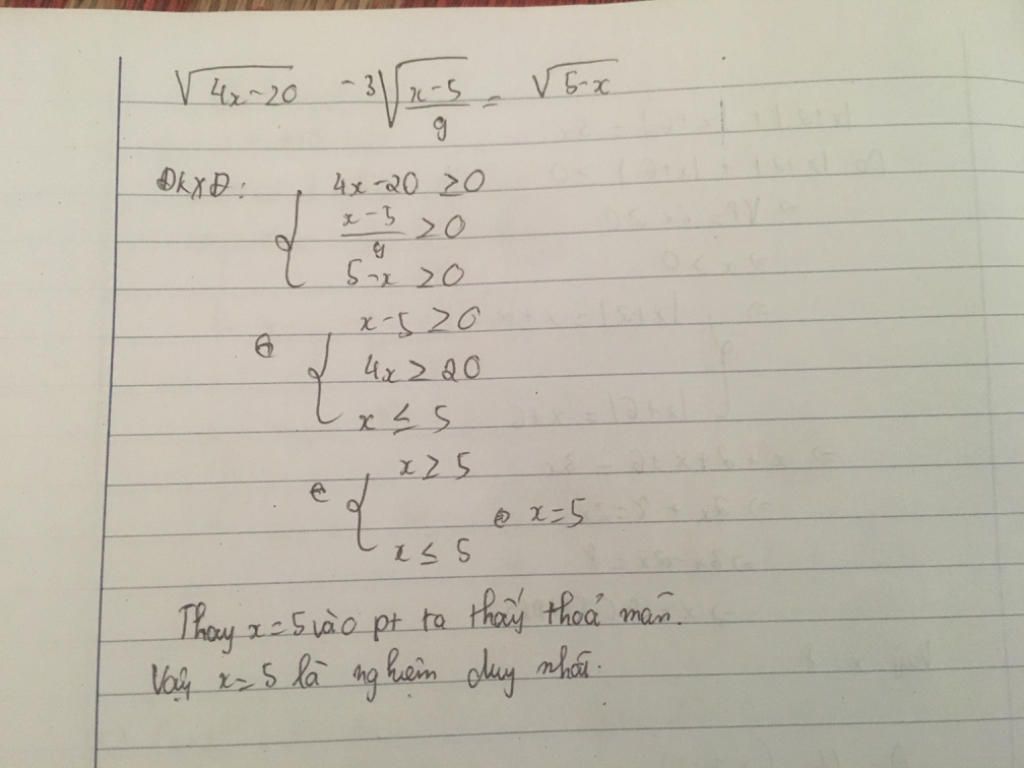 √(4x-20) - 3√((x-5)/9) = √(5-x)
ĐKXĐ:
4x-20 ≥0
(x-5)/9 ≥0
5-x ≥0
⇔
x-5 ≥0
4x ≥ 20
x ≤ 5
⇔
x ≥ 5
⇔ x=5
x ≤ 5
Thay x=5 vào pt ta thấy thoả mãn.
Vậy x=5 là nghiệm duy nhất.